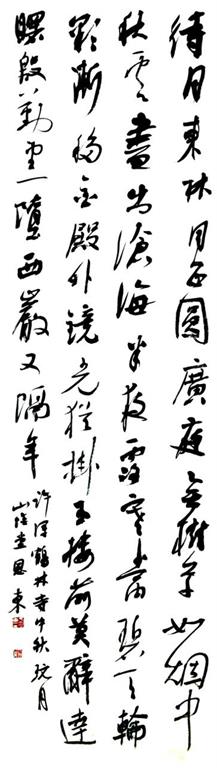 待月東林月正圓廣庭無樹草如烟中
秋雲盡出滄海半夜露寒當碧天輪
彩漸移金殿外鏡光猶掛玉樓前莫辭達
曙殷勤望一墮西巖又隔年
許渾鶴林寺中秋玩月
山陰恩東